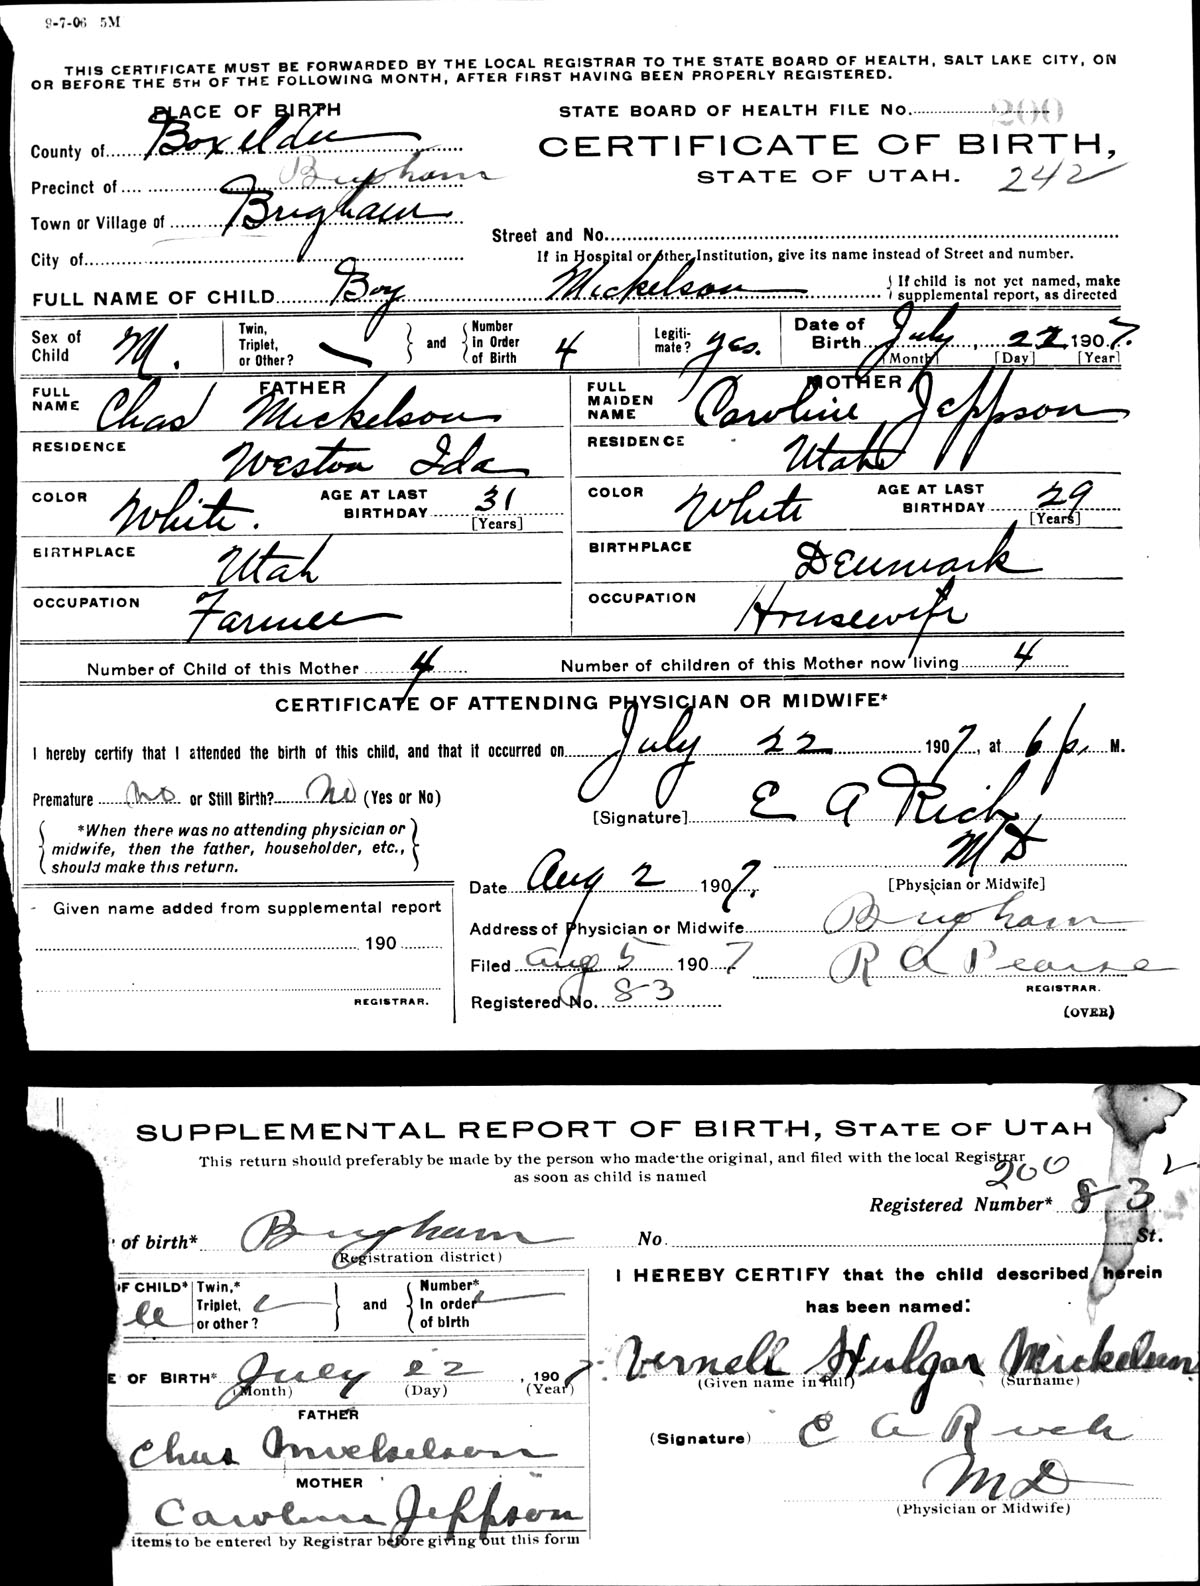 9-7-06 5M
THIS CERTIFICATE MUST BE FORWARDED BY THE LOCAL REGISTRAR TO THE STATE BOARD OF HEALTH, SALT LAKE CITY, ON
OR BEFORE THE 5TH OF THE FOLLOWING MONTH, AFTER FIRST HAVING BEEN PROPERLY REGISTERED.
PLACE OF BIRTH
STATE BOARD OF HEALTH FILE No. 200
County of Boxelder
CERTIFICATE OF BIRTH,
STATE OF UTAH. 242
Precinct of Brigham
Town or Village of Brigham
Street and No.
City of
If in Hospital or other Institution, give its name instead of Street and number.
FULL NAME OF CHILD Boy Mickelson { If child is not yet named, make supplemental report, as directed
Sex of Child M. Twin, Triplet, or Other? } and { Number in Order of Birth 4 Legitimate? yes. Date of Birth July 22 1907.
[Month] [Day] [Year]
FATHER
FULL NAME Chas Mickelson
RESIDENCE Weston Ida
COLOR White. AGE AT LAST BIRTHDAY 31 [Years]
BIRTHPLACE Utah
OCCUPATION Farmer
MOTHER
FULL MAIDEN NAME Caroline Jeppson
RESIDENCE Utah
COLOR White AGE AT LAST BIRTHDAY 29 [Years]
BIRTHPLACE Denmark
OCCUPATION Housewife
Number of Child of this Mother 4 Number of children of this Mother now living 4
CERTIFICATE OF ATTENDING PHYSICIAN OR MIDWIFE*
I hereby certify that I attended the birth of this child, and that it occurred on July 22 1907, at 6 p. M.
Premature no or Still Birth? No (Yes or No)
[Signature] E A Rich
M D
[Physician or Midwife]
{ *When there was no attending physician or midwife, then the father, householder, etc., should make this return. }
Date Aug 2 1907.
Given name added from supplemental report
190
REGISTRAR.
Address of Physician or Midwife Brigham
Filed Aug 5 1907 R A Pearse
REGISTRAR.
Registered No. 83
(OVER)
SUPPLEMENTAL REPORT OF BIRTH, STATE OF UTAH
This return should preferably be made by the person who made the original, and filed with the local Registrar
as soon as child is named
200
Registered Number* 83
of birth* Brigham No. St.
(Registration district)
OF CHILD* Twin,* Triplet, or other? } and { Number* In order of birth
I HEREBY CERTIFY that the child described herein
has been named:
E OF BIRTH* July 22, 1907.
(Month) (Day) (Year)
Vernell Hulgar Mickelsen
(Given name in full) (Surname)
FATHER
Chas Mickelson
(Signature) E A Rich
M D
(Physician or Midwife)
MOTHER
Caroline Jeppson
items to be entered by Registrar before giving out this form